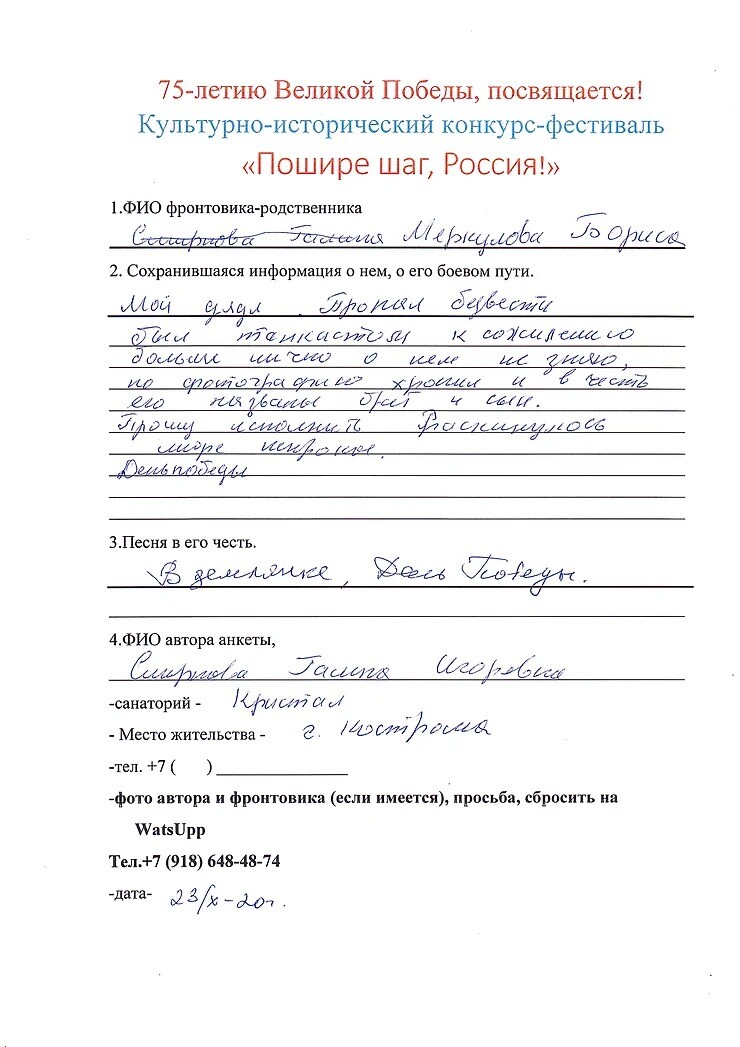 75-летию Великой Победы, посвящается!
Культурно-исторический конкурс-фестиваль
«Пошире шаг, Россия!»
1.ФИО фронтовика-родственника
Смирнова Галина Меркулова Бориса
2. Сохранившаяся информация о нем, о его боевом пути.
Мой дядя. Пропал безвести
был танкистом к сожалению
больше лично о нем не знаю,
но фотографию хранил и в честь
его названы брат и сын.
Прошу исполнить Раскинулось
море широкое.
День победы
3.Песня в его честь.
В землянке, День Победы.
4.ФИО автора анкеты,
Смирнова Галина Игоревна
-санаторий - Кристал
- Место жительства - г. Кострома
-тел. +7 ( ) _______________
-фото автора и фронтовика (если имеется), просьба, сбросить на
WatsUpp
Тел.+7 (918) 648-48-74
-дата- 23/X-20г.